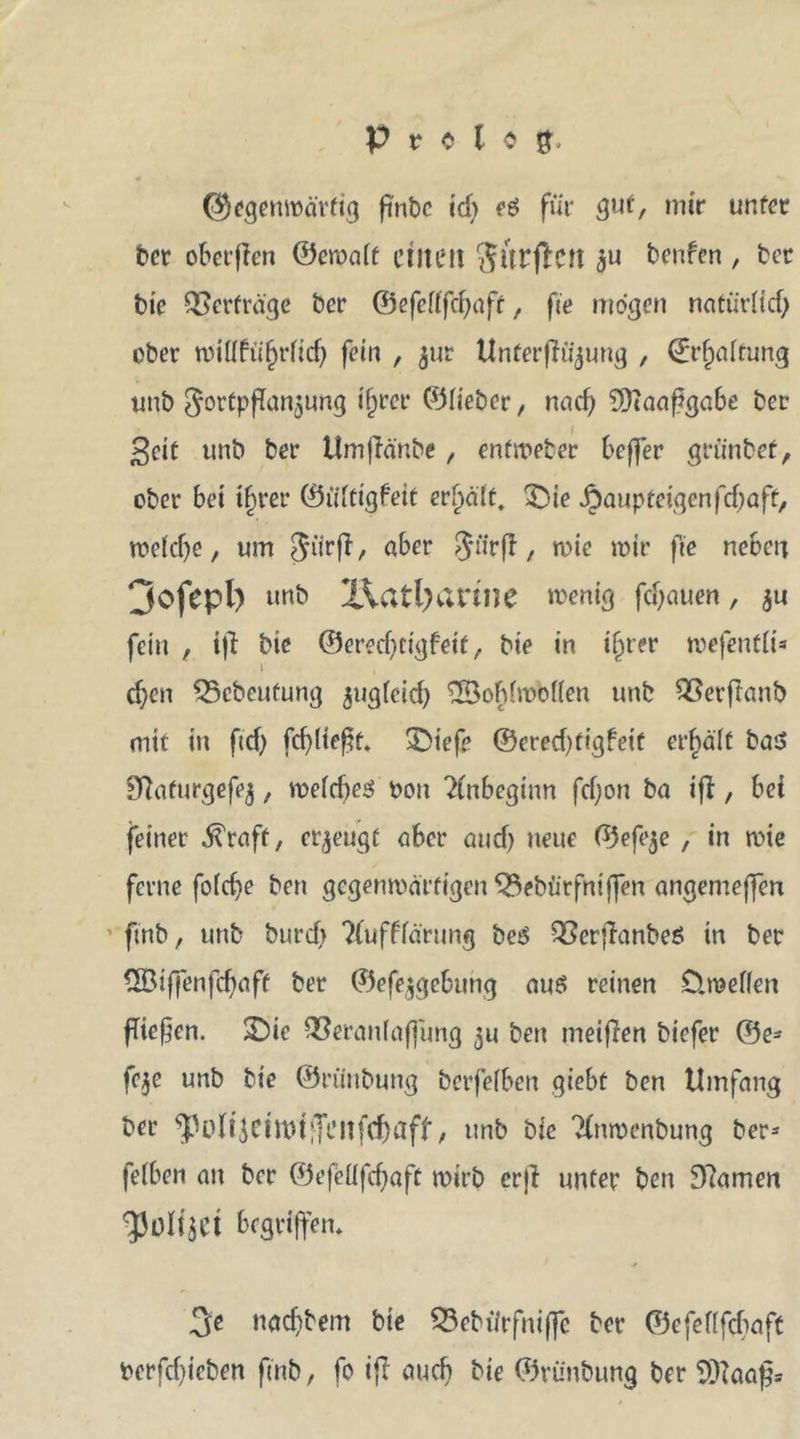 Prolog.
Gegenwärtig finde ich es für gut, mir unter
der obersten Gewalt einen Fürsten zu denken, der
die Verträge der Gesellschaft, sie mögen natürlich
oder willkührlich sein, zur Unterstüzung, Erhaltung
und Fortpflanzung ihrer Glieder, nach Maaßgabe der
Zeit und der Umstände, entweder besser gründet,
oder bei ihrer Gültigkeit erhält. Die Haupteigenschaft,
welche, um Fürst, aber Fürst, wie wir sie neben
Joseph und Katharine wenig schauen, zu
sein, ist die Gerechtigkeit, die in ihrer wesentli-
chen Bedeutung zugleich Wohlwollen und Verstand
mit in sich schließt. Diese Gerechtigkeit erhält das
Naturgesez, welches von Anbeginn schon da ist, bei
seiner Kraft, erzeugt aber auch neue Geseze, in wie
ferne solche den gegenwärtigen Bedürfnissen angemessen
sind, und durch Aufklärung des Verstandes in der
Wissenschaft der Gesezgebung aus reinen Qwellen
fließen. Die Veranlassung zu den meisten dieser Ge-
seze und die Gründung derselben giebt den Umfang
der Polizeiwissenschaft, und die Anwendung der-
selben an der Gesellschaft wird erst unter den Namen
Polizei begriffen.
Je nachdem die Bedürfnisse der Gesellschaft
verschieden sind, so ist auch die Gründung der Maaß-